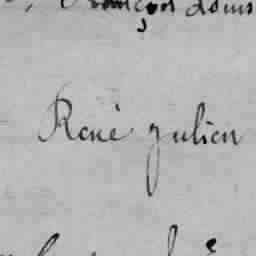 François Louis
René Julien